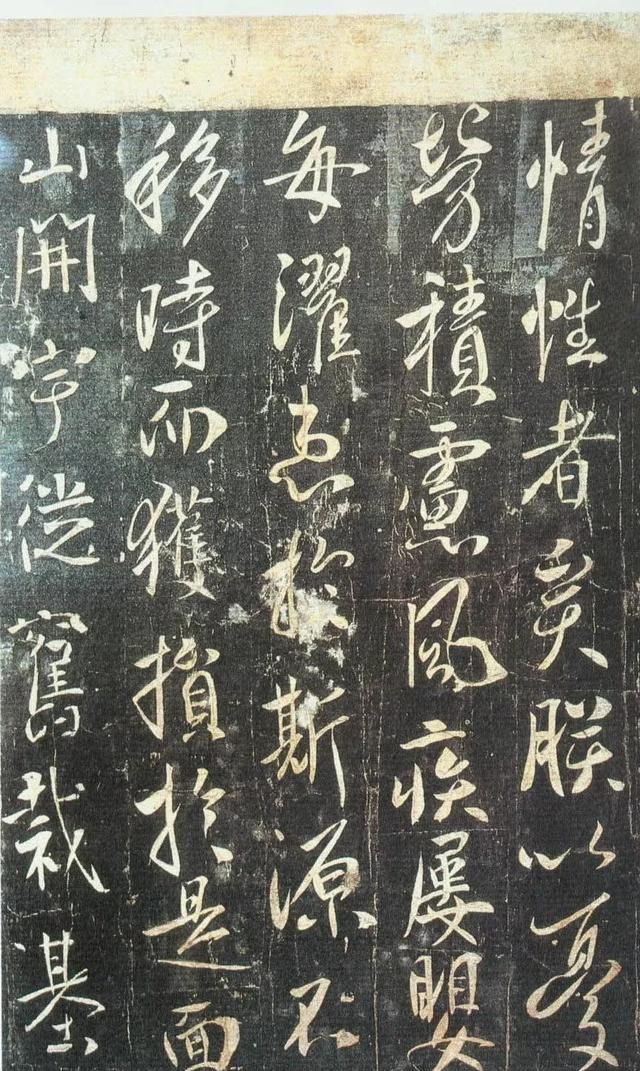 情性者矣朕以憂
勞積慮風疾屢嬰
每濯患於斯源不
移時而獲損於是面
山開宇從舊裁基